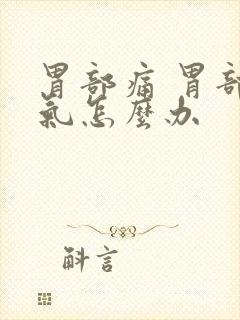 胃部痛 胃部
氣怎麼办
斛言